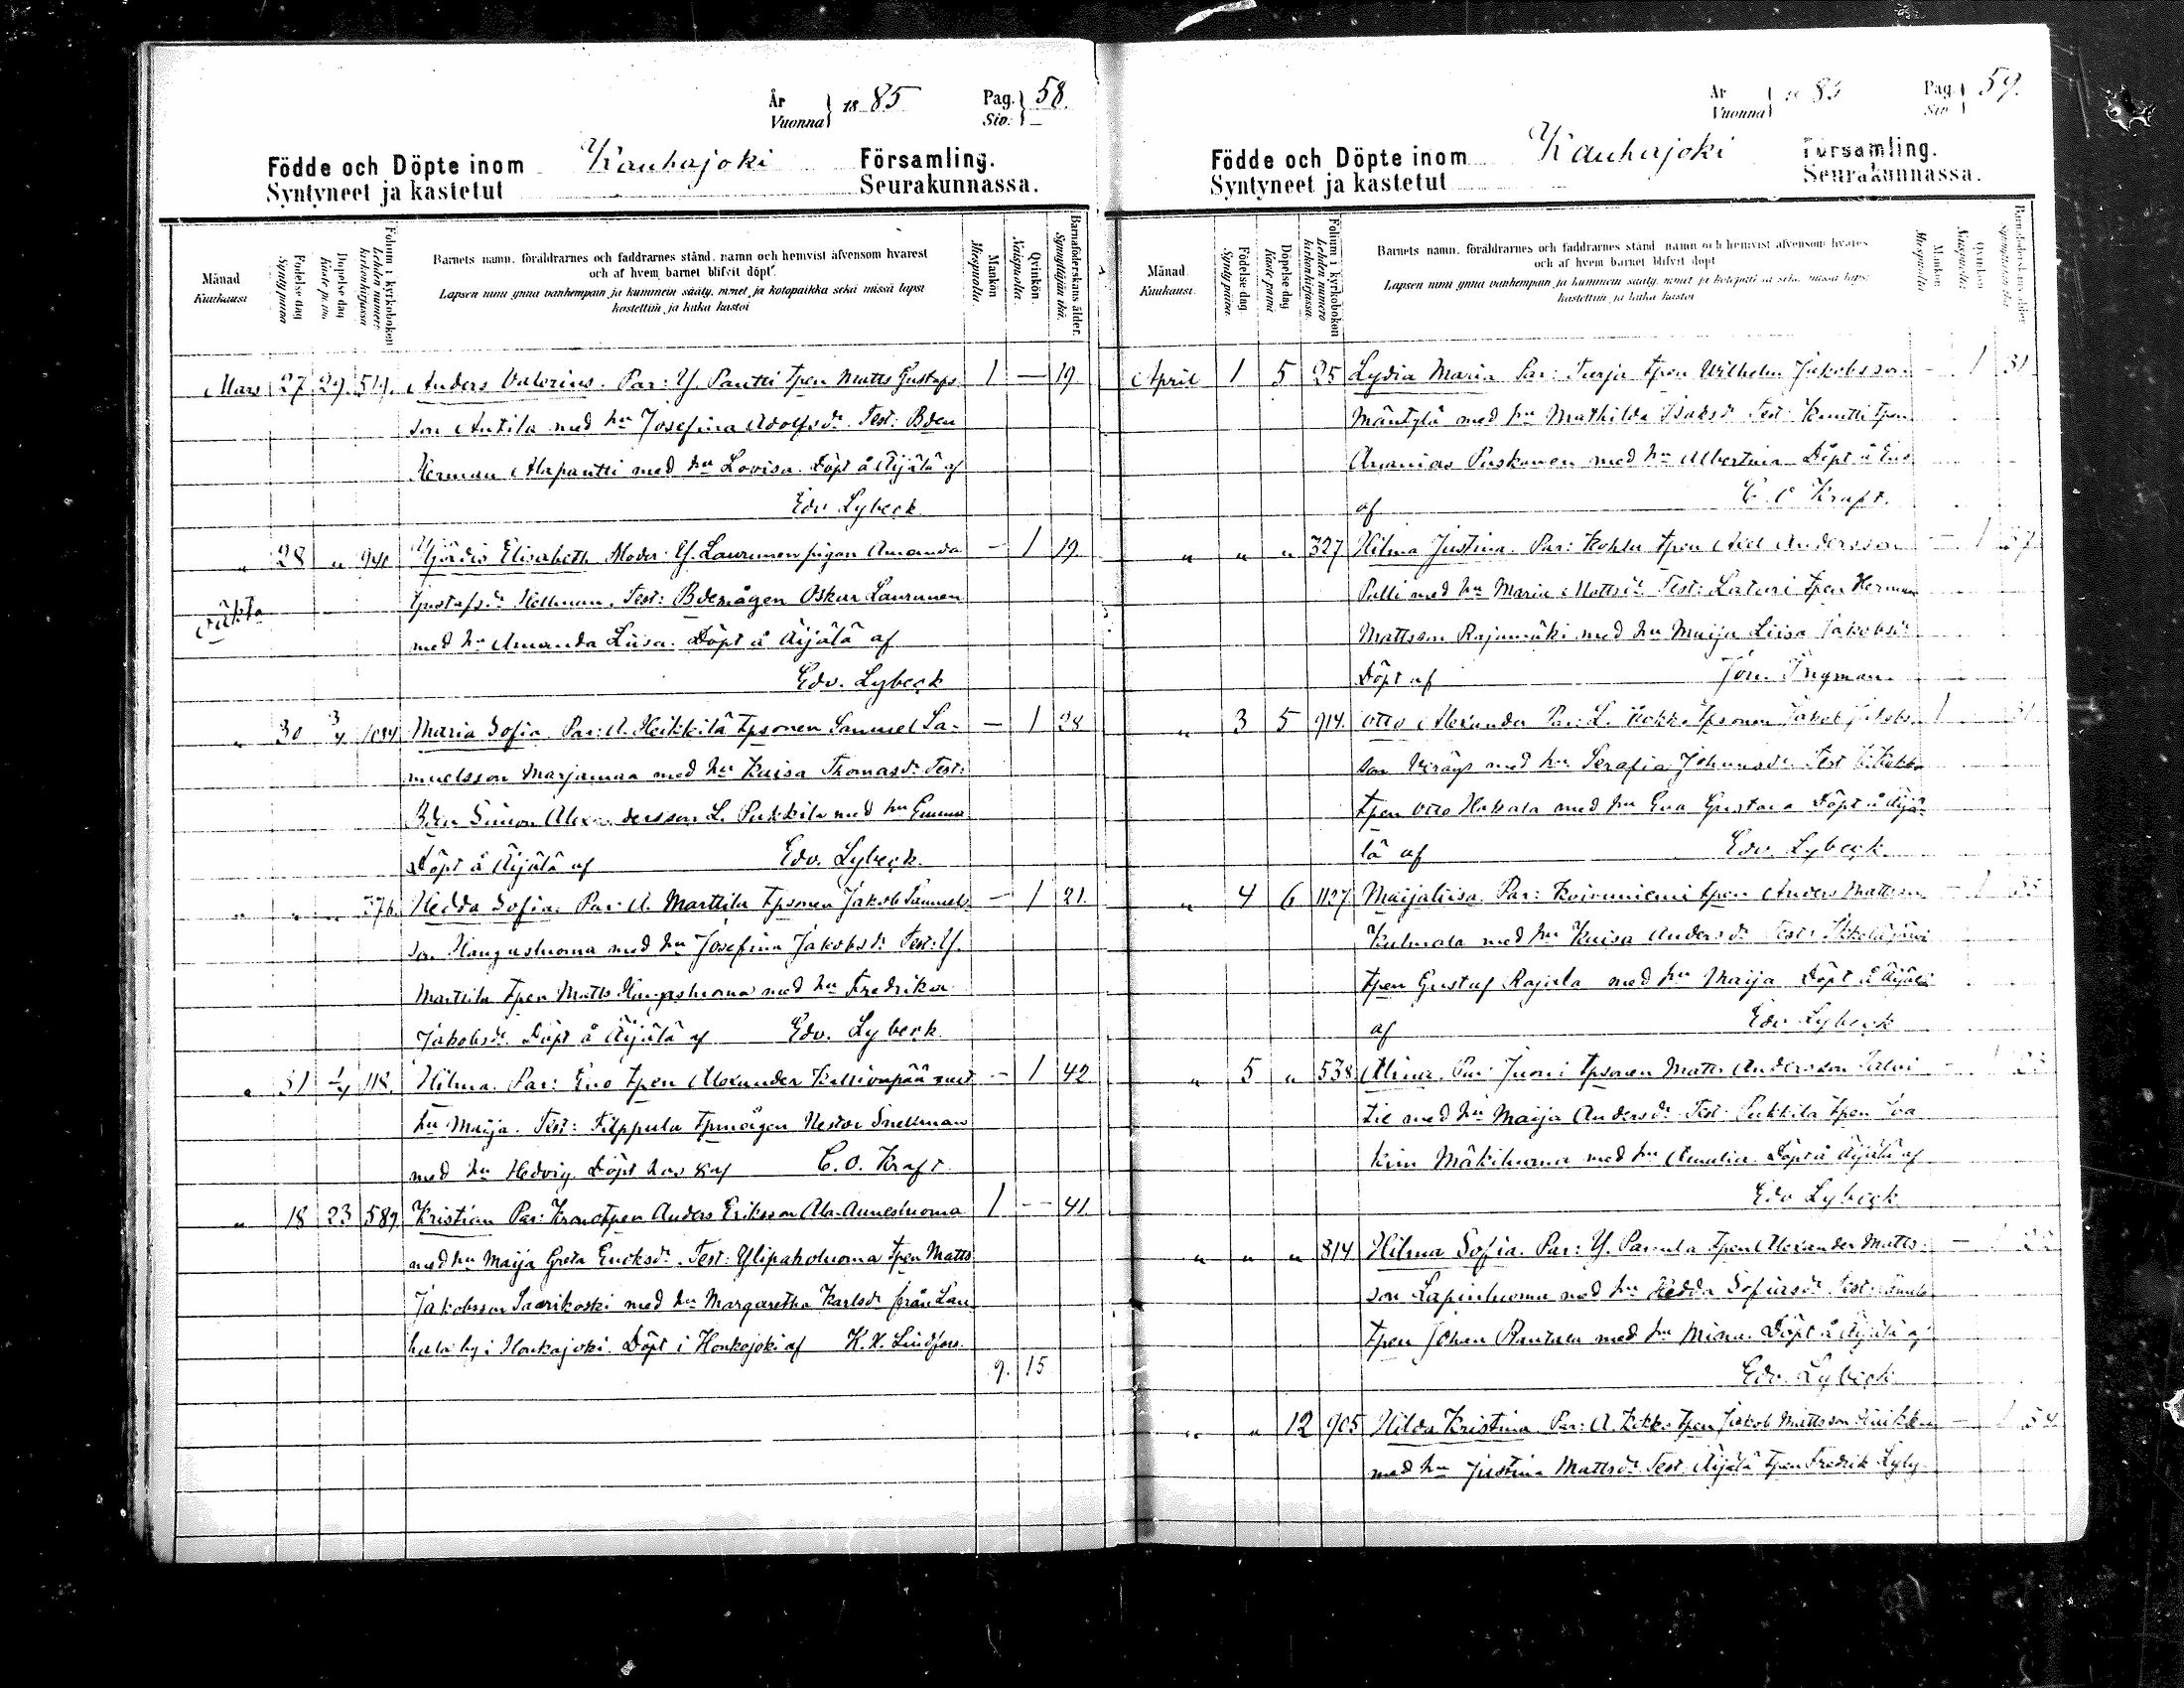 År
Vuonna 18 85 Pag.
Siv. 58.
Födde och Döpte inom Kauhajoki Församling.
Syntyneet ja kastetut Seurakunnassa.
Månad
Kuukausi
Födelse dag
Synty päivä
Döpelse dag
Kaste päivä
Folium i kyrkoboken
Lehden numero kirkonkirjassa
Barnets namn, föräldrarnes och faddrarnes stånd, namn och hemvist äfvensom hvarest
och af hvem barnet blifvit döpt.
Lapsen nimi ynnä vanhempain ja kummein sääty, nimet ja kotopaikka sekä missä lapsi
kastettiin ja kuka kastoi
Mankön
Miespuolta.
Qvinkön.
Naispuolta.
Barnaföderskans ålder.
Synnyttäjän ikä.
Mars 27 29. 519. Anders Valerius. Par: Y Pantti tpen Matts Gustafs-
son Antila med hu Josefina Adolfsdr. Test: Bden 1 — 19
Herman Alapantti med hu Lovisa. Döpt å Äijälä af
Edv. Lybeck
" 28 " 941 Hjördis Elisabeth Moder: Y. Laurunen pigan Amanda — 1 19
Gustafsdr Hellman. Test: Bdemågen Oskar Laurunen
oäkta
med hu Amanda Liisa. Döpt å Äijälä af
Edv. Lybeck
" 30 3/4 1084 Maria Sofia. Par: A. Heikkilä tpsonen Samuel Sa- — 1 28
muelsson Marjamaa med hu Kaisa Thomasdr. Test:
Bden Simon Alexandersson L. Pukkila med hu Emma
Döpt å Äijälä af Edv. Lybeck.
" " " 376. Hedda Sofia. Par: A. Marttila tpsonen Jakob Samuels- — 1 21.
son Hangasluoma med hu Josefina Jakobsdr. Test: Y.
Marttila tpen Matts Hangasluoma med hu Fredrika
Jakobsdr. Döpt å Äijälä af Edv. Lybeck.
" 31 1/4 118. Hilma. Par: Eno tpen Alexander Kallionpää med — 1 42
hu Maija. Test: Filppula tpmågen Nestor Snellman
med hu Hedvig. Döpt hos af C. O. Kraft.
" 18 23 589 Kristian Par: Kronotpen Anders Eriksson Ala-Annesluoma 1 -- 41.
med hu Maija Greta Ericksdr. Test: Ylipaholuoma tpen Matts
Jakobsson Saarikoski med hu Margaretha Karlsdr från Lau
hala by i Honkajoki. Döpt i Honkajoki af K. H. Lindfors.
9. 15
År
Vuonna 18 85 Pag.
Siv. 59.
Födde och Döpte inom Kauhajoki Församling.
Syntyneet ja kastetut Seurakunnassa.
Månad
Kuukausi.
Födelse dag.
Synty päivä.
Döpelse dag
Kaste päivä
Folium i kyrkoboken
Lehden numero kirkonkirjassa.
Barnets namn, föräldrarnes och faddrarnes stånd, namn och hemvist äfvensom hvarest
och af hvem barnet blifvit döpt
Lapsen nimi ynnä vanhempain ja kummein sääty, nimet ja kotopaikka sekä missä lapsi
kastettiin ja kuka kastoi
Mankön
Miespuolta
Qvinkön
Naispuolta
Barnaföderskans ålder
April 1 5 25 Lydia Maria Par: Turja tpen Wilhelm Jakobsson — 1 31
Mäntylä med hu Mathilda Isaksdr Test: Knuttti tpen
Ananias Puskanen med hu Albertina Döpt å Eno
af C. O Kraft.
" " " 327 Hilma Justina. Par: Kohlu tpen Axel Andersson — 1 37
Pulli med hu Maria Mattsdr Test: Laturi tpen Herman
Mattsson Rajamäki med hu Maija Liisa Jakobsdr
Döpt af Jon. Ingman
" 3 5 914. Otto Alexander Par: L. Kokko tpsonen Jakob Jakobs- 1 31
son Viräys med hu Serafia Johansdr. Test Kokko
tpen Otto Hakala med hu Eva Gustava Döpt å Äijä-
lä af Edv. Lybeck.
" 4 6 1127 Maijaliisa. Par: Koivuniemi tpen Anders Mattsson — 1 35
Kulmala med hu Kaisa Andersdr Test: Ikkeläjärvi
tpen Gustaf Rajala med hu Maija Döpt å Äijälä
af Edv Lybeck
" 5 " 538 Alina. Par: Juoni tpsonen Matts Andersson Salvi —
tie med hu Maija Andersdr Test: Pukkila tpen Joa
kim Mäkiluoma med hu Amalia. Döpt å Äijälä af
Edv Lybeck
" " " 814 Hilma Sofia. Par: Y. Panula tpen Alexander Matts- —
son Lapinluoma med hu Hedda Sofiasdr Test:
tpen Johan Rantala med hu Mina. Döpt å Äijälä af
Edv. Lybeck
" " 12 905 Hilda Kristina Par: A. Kokko tpen Jakob Mattsson — 1
med hu Justina Mattsdr Test: Äijälä tpen Fredrik Lyly-